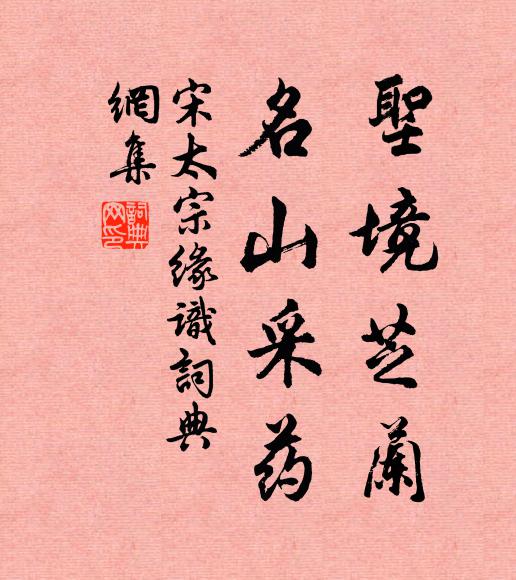 聖境芝蘭
名山采药
宋太宗缘識詞典
網集
詞典
网印